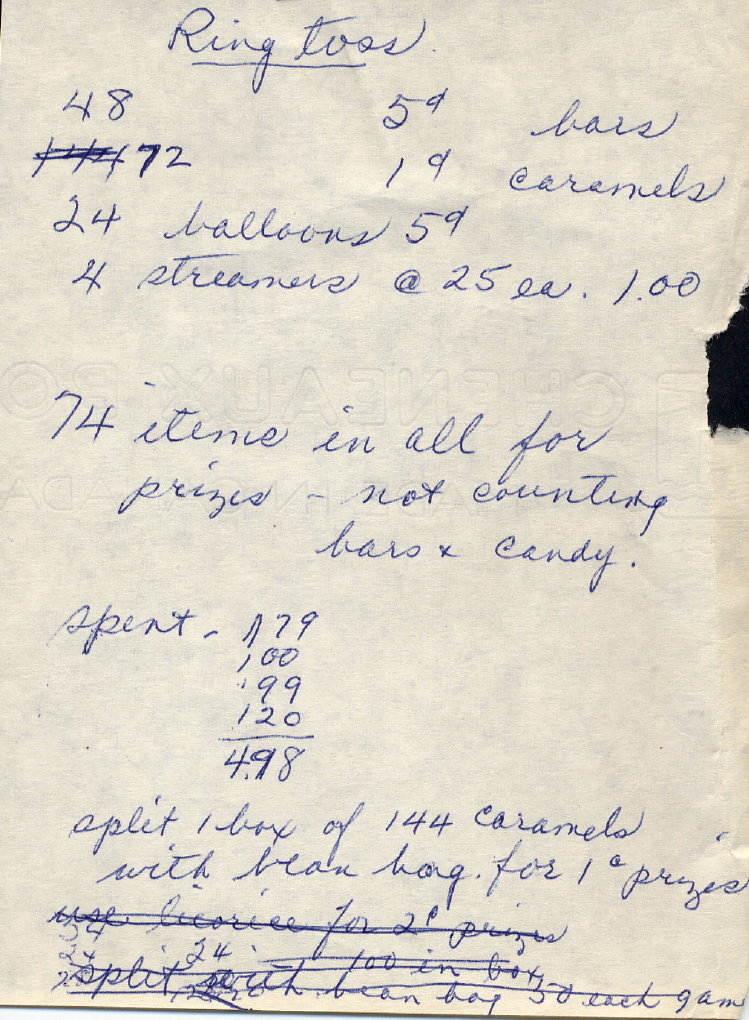 Ring toss.
48 5¢ bars
144 72 1¢ caramels
24 balloons 5¢
4 streamers @ 25 ea. 1.00
74 items in all for
prizes - not counting
bars & candy.
spent - 179
100
.99
120
4.98
split 1 box of 144 caramels
with bean bag. for 1¢ prizes
use licorice for 2¢ prizes
24
24 100 in box
split with bean bag 50 each gam